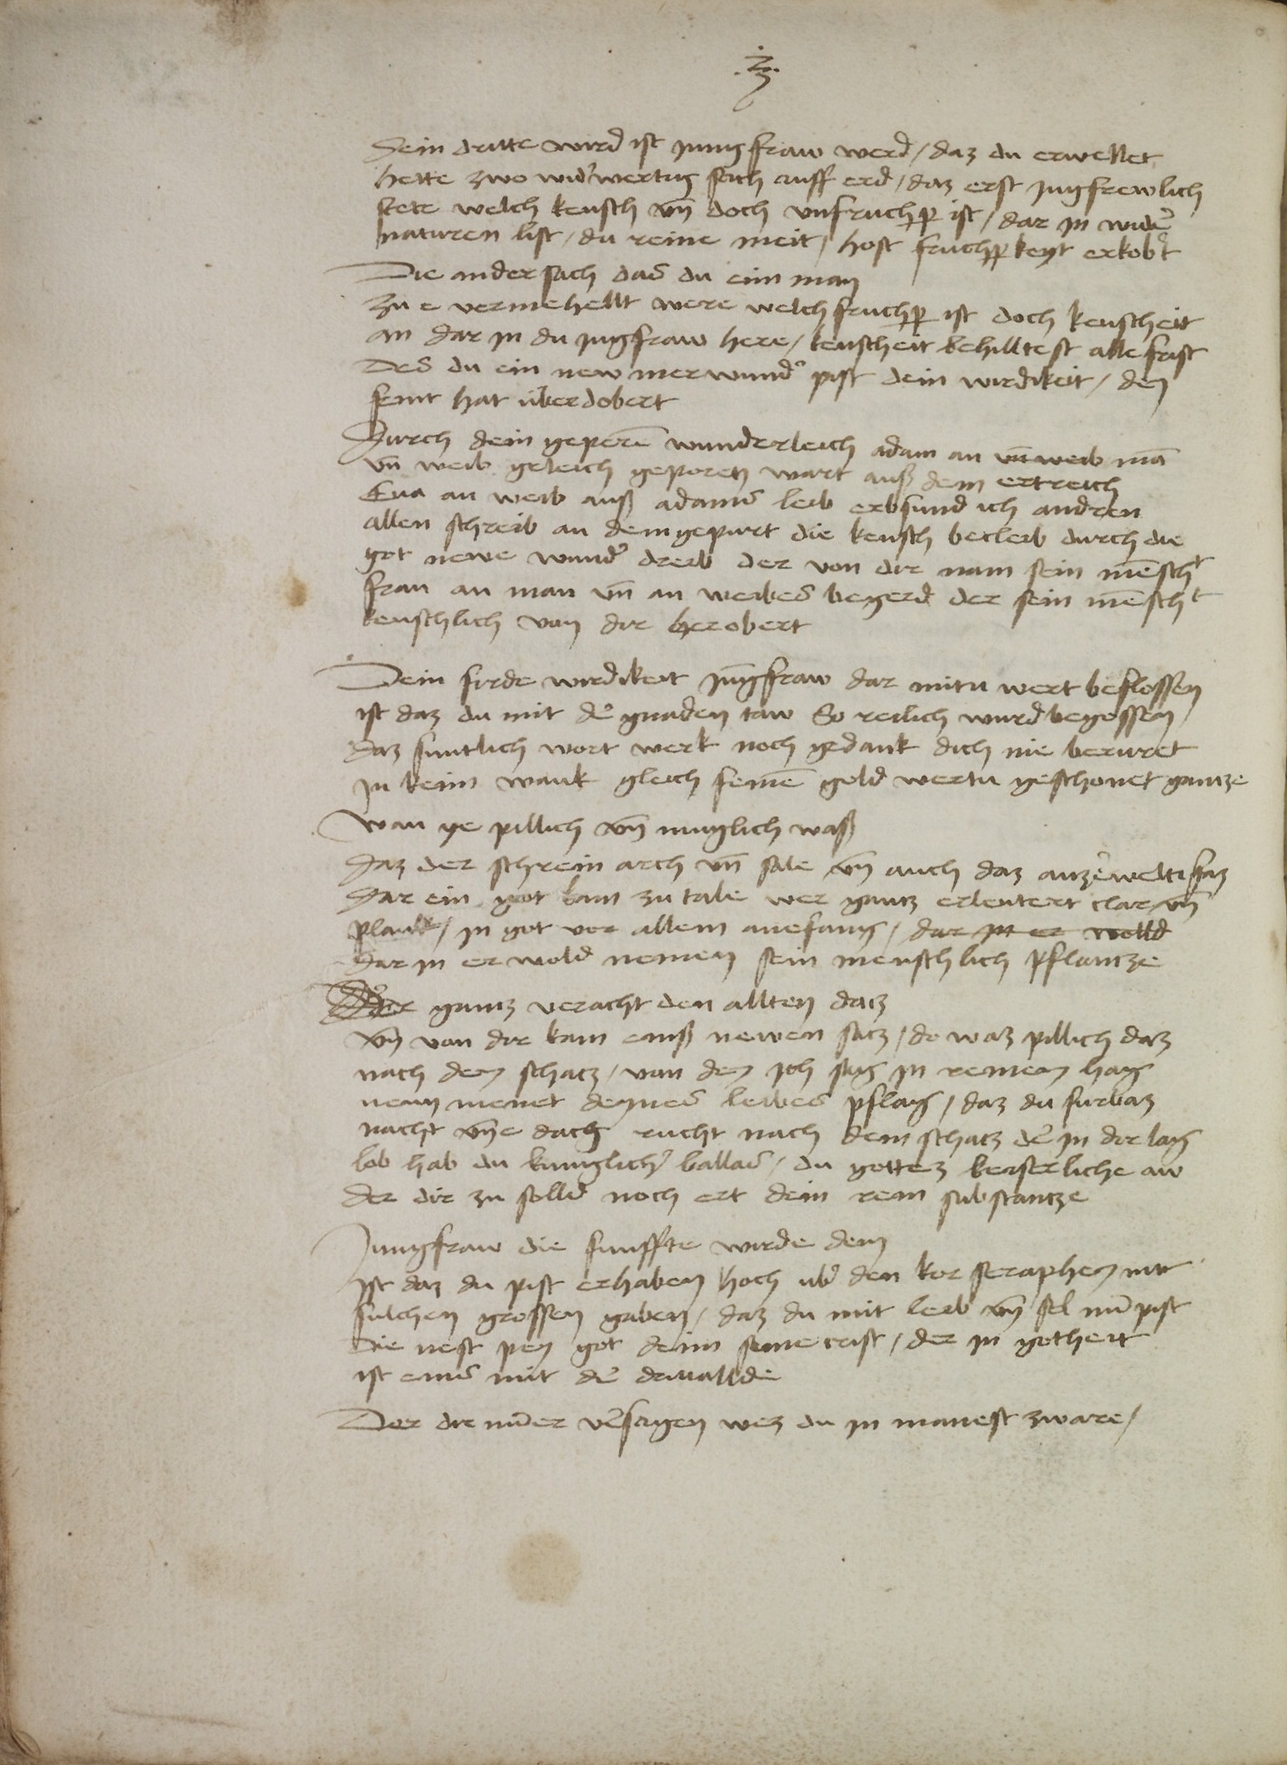 .3.
Dein dritte wird ist jungfraw werd / daz du erwellet
hette zwo widerwertig sach auff erd / daz erst jugfrewlich
stete welch keusch vn̄ doch vnfruchper ist / dar in wider
naturen list / du reine meit / host fruchperkeyt erkobert
Die ander sach das du eim man
zu e vermehellt were welch fruchper ist doch keuscheit
an dar in du jugfraw here / keuscheit behilltest alle frist
Des du ein new merwunder pist dein wirdikeit / den
hat überdobert
Durch dein geperē wunderleich adam an vn̄ weib mā
vn̄ weib geleich geporen wart auß dem ertreich
Eua an weib auß adams leib erbsund ich andren
allen schreib an dem gepurt die keusch becleib durch die
got newe wunder dreib der von dir nam sein mēscht
frau an man vn̄ an weibes begerd der sein mēscht
keuschlich von dir herobert
Dein firde wirdikeit jūgfraw dar mitu wert beflossen
ist daz du mit der gnaden taw So reilich wurd begossen
daz suntlich wort werk noch gedank dich nie beruret
in keim wank gleich feinē gold wertu geschonet gantze
Wan ye pillich vn̄ muglich waß
daz der schrein arch vn̄ sale vn̄ auch daz außerwelte faz
dar ein got kam zu tale wer gantz erleutert clar vn̄
plank / in got vor allem anefang / dar in er wolld
dar in er wold nemen sein menschlich pflantze
gantz veracht den allten datz
vn̄ von dir kam einß newen satz / do waz pillich daz
nach dem schatz / von dem ich sag in reinem hag
neun menet deynes leibes pflag / daz du furbaz
nacht vn̄e dach rucht nach dem schatz der in dir lag
lob hab du kuniglicher ballas / du gottez keyserliche aw
der dir zu solld noch ert dein rein substantze
Jungfraw die funffte wirde dein
Ist daz du pist erhaben hoch uber den kor seraphein mit
sulchen grossen gaben / daz du mit leib vn̄ sel nū pist
die nest pey got deim sune crist / der in gotheit
ist eines mit der driuallde
Der dir nūer versagen wez du in manest zware /